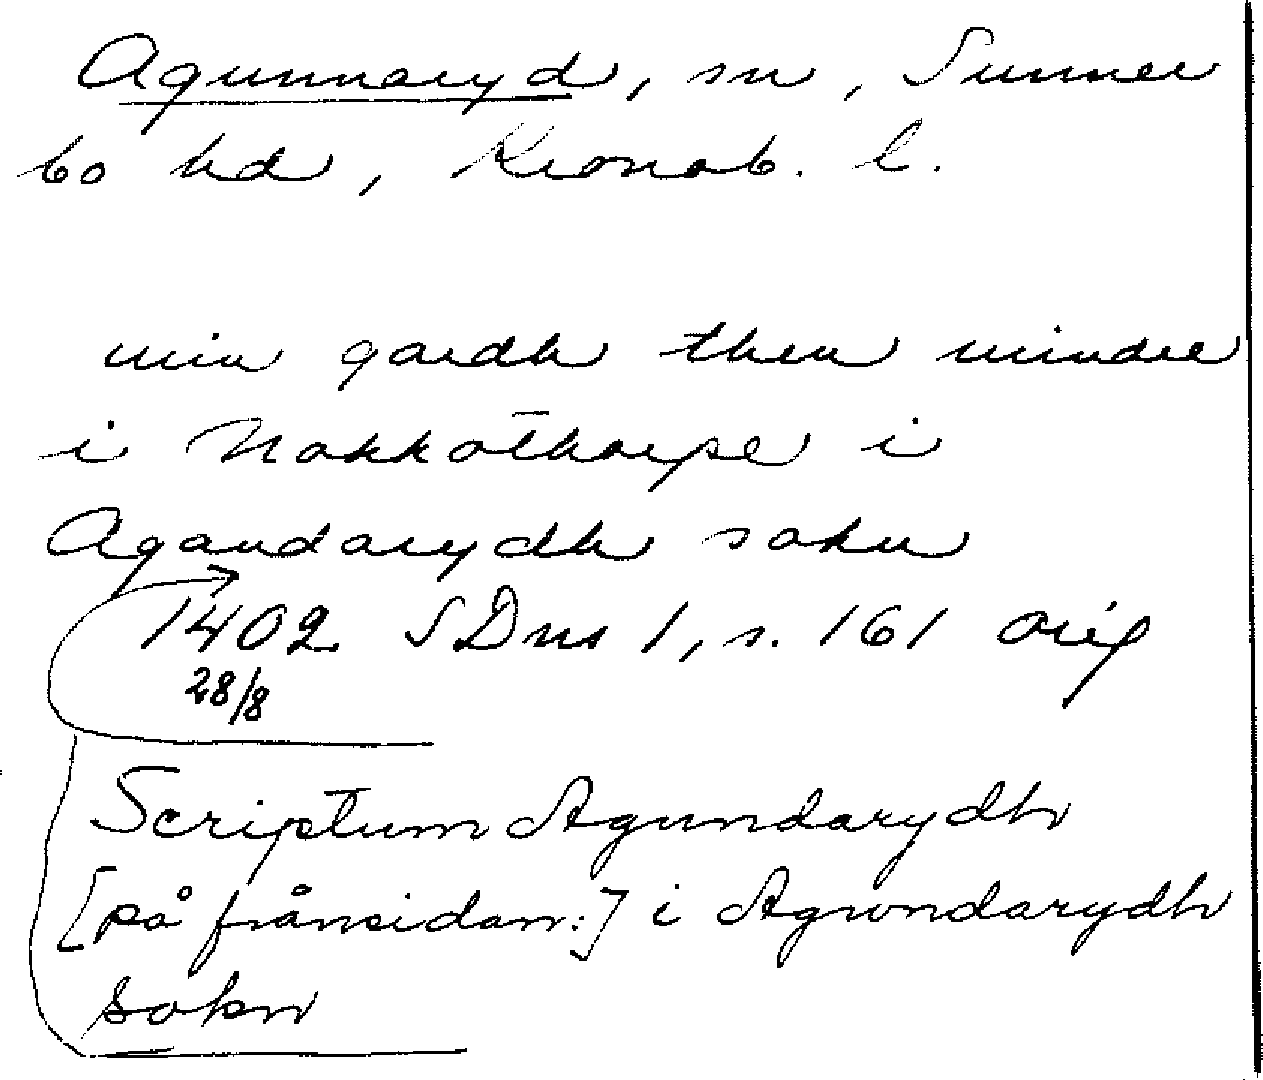 Agunnaryd, sn, Sunner
bo hd, Kronob. l.
min gardh then mindre
i Nakkathorpe i
Agundarydh sokn
1402 SDns 1, s. 161 orig
28/8
Scriptum Agundarydh
[på frånsidan:] i Agwndarydh
sokn